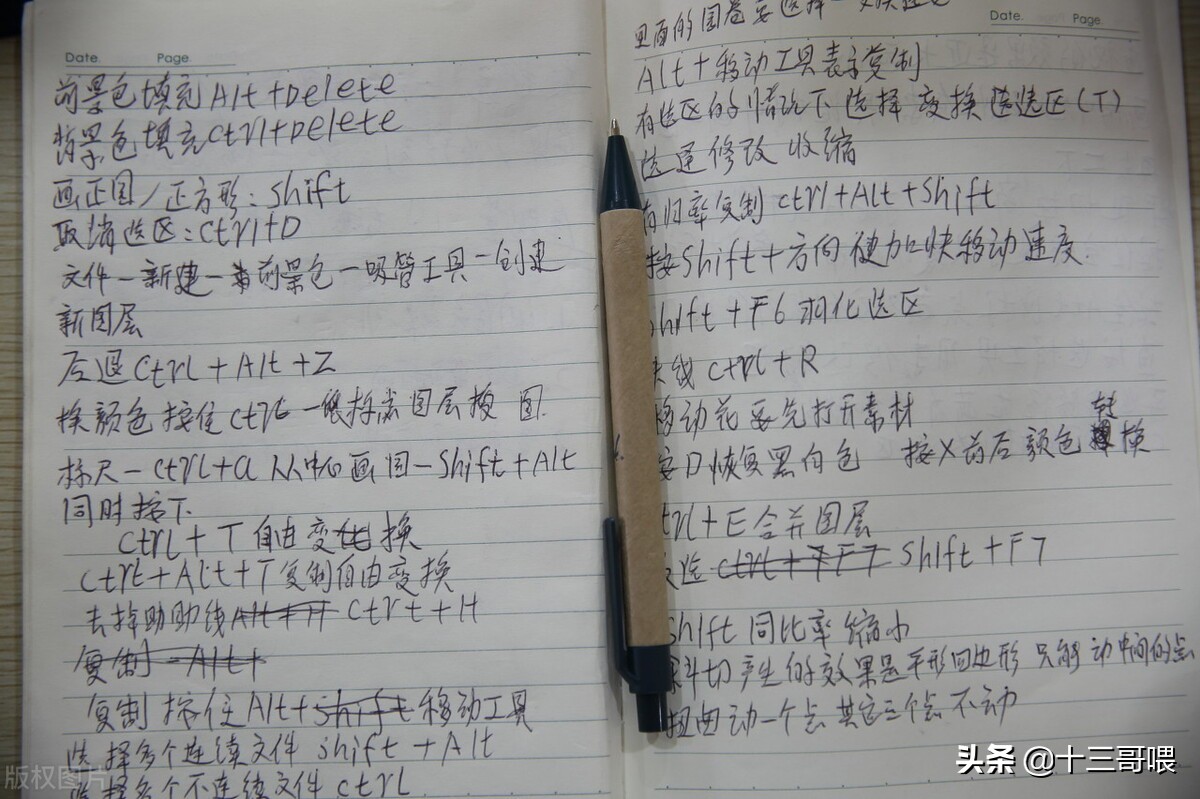 Date. Page.
前景色填充 Alt+Delete
背景色填充 Ctrl+Delete
画正圆/正方形:Shift
取消选区:Ctrl+D
文件—新建—前景色—吸管工具—创建
新图层
后退 Ctrl+Alt+Z
换颜色 按住 Ctrl
标尺—Ctrl+a 从中心画圆—Shift+Alt
同时按下
Ctrl+T 自由变换
Ctrl+Alt+T 复制自由变换
去掉助助线 Alt+H Ctrl+H
复制-Alt+
复制 按住 Alt+Shift 移动工具
选择多个连续文件 Shift+Alt
选择多个不连续文件 Ctrl
版权图片
Date. Page.
里面的图卷要选择
Alt+移动工具表示复制
有选区的情况下选择变换选区(T)
修改 收缩
归率复制 Ctrl+Alt+Shift
按Shift+方向键加快移动速度
Shift+F6 羽化选区
线 Ctrl+R
移动花要先打开素材
D恢复黑白色 按X前后颜色转换
Ctrl+E 合并图层
选 Ctrl+F7 Shift+F7
Shift 同比率缩小
斜切产生的效果是平形四边形 只能动中间的点
扭曲动一个点 其它三个点不动
头条 @十三哥喂